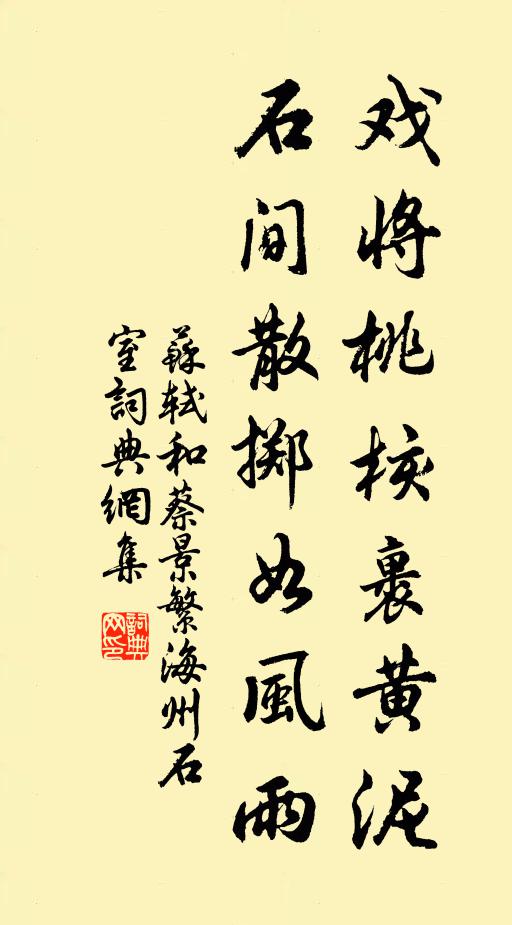 戏将桃核裹黄泥
石间散掷如風雨
蘇轼和蔡景繁海州石
室詞典網集
詞典网印